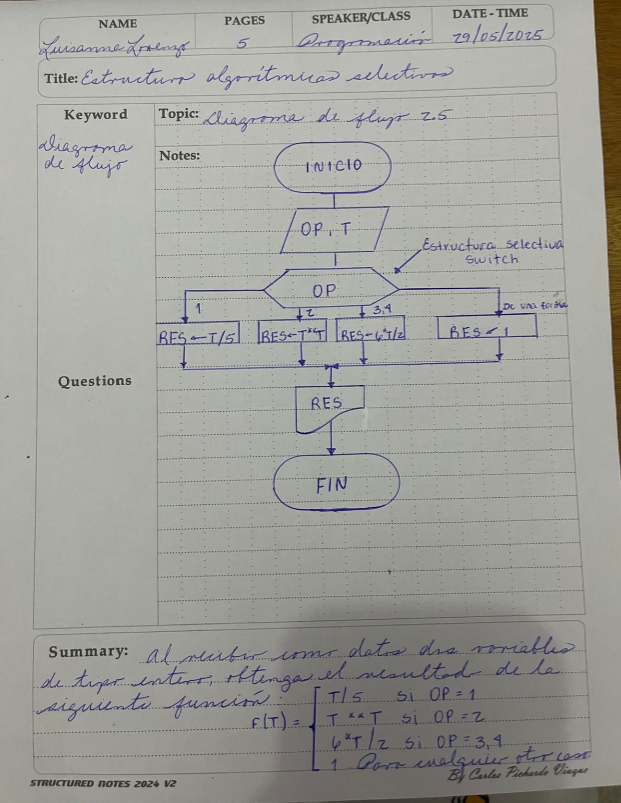 NAME PAGES SPEAKER/CLASS DATE - TIME
Luisanna Lorenzo 5 Programación 29/05/2025
Title: Estructura algorítmicas selectivas
Keyword
Topic: Diagrama de flujo 2.5
Diagrama
de flujo
Notes:
INICIO
OP, T
Estructura selectiva
switch
OP
1 2 3,4 De una forma
RES ← T/5 RES ← T**T RES ← 6*T/2 RES ← 1
Questions
RES
FIN
Summary: Al recibir como datos dos variables
de tipo entero, obtenga el resultado de la
siguiente función:
T/5 si OP = 1
F(T) = T ** T si OP = 2
6*T/2 si OP = 3,4
1 Para cualquier otro caso
STRUCTURED NOTES 2024 V2
By Carlos Pichardo Vinque